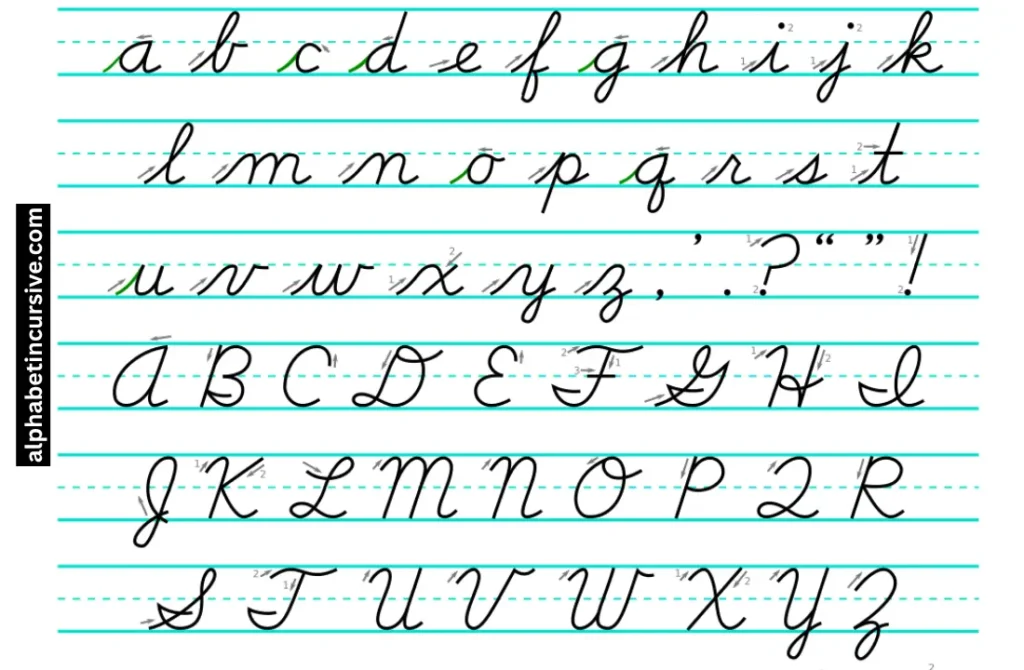 alphabetincursive.com
a b c d e f g h i j k
l m n o p q r s t
u v w x y z , ’ . ? “ ” !
A B C D E F G H I
J K L M N O P Q R
S T U V W X Y Z